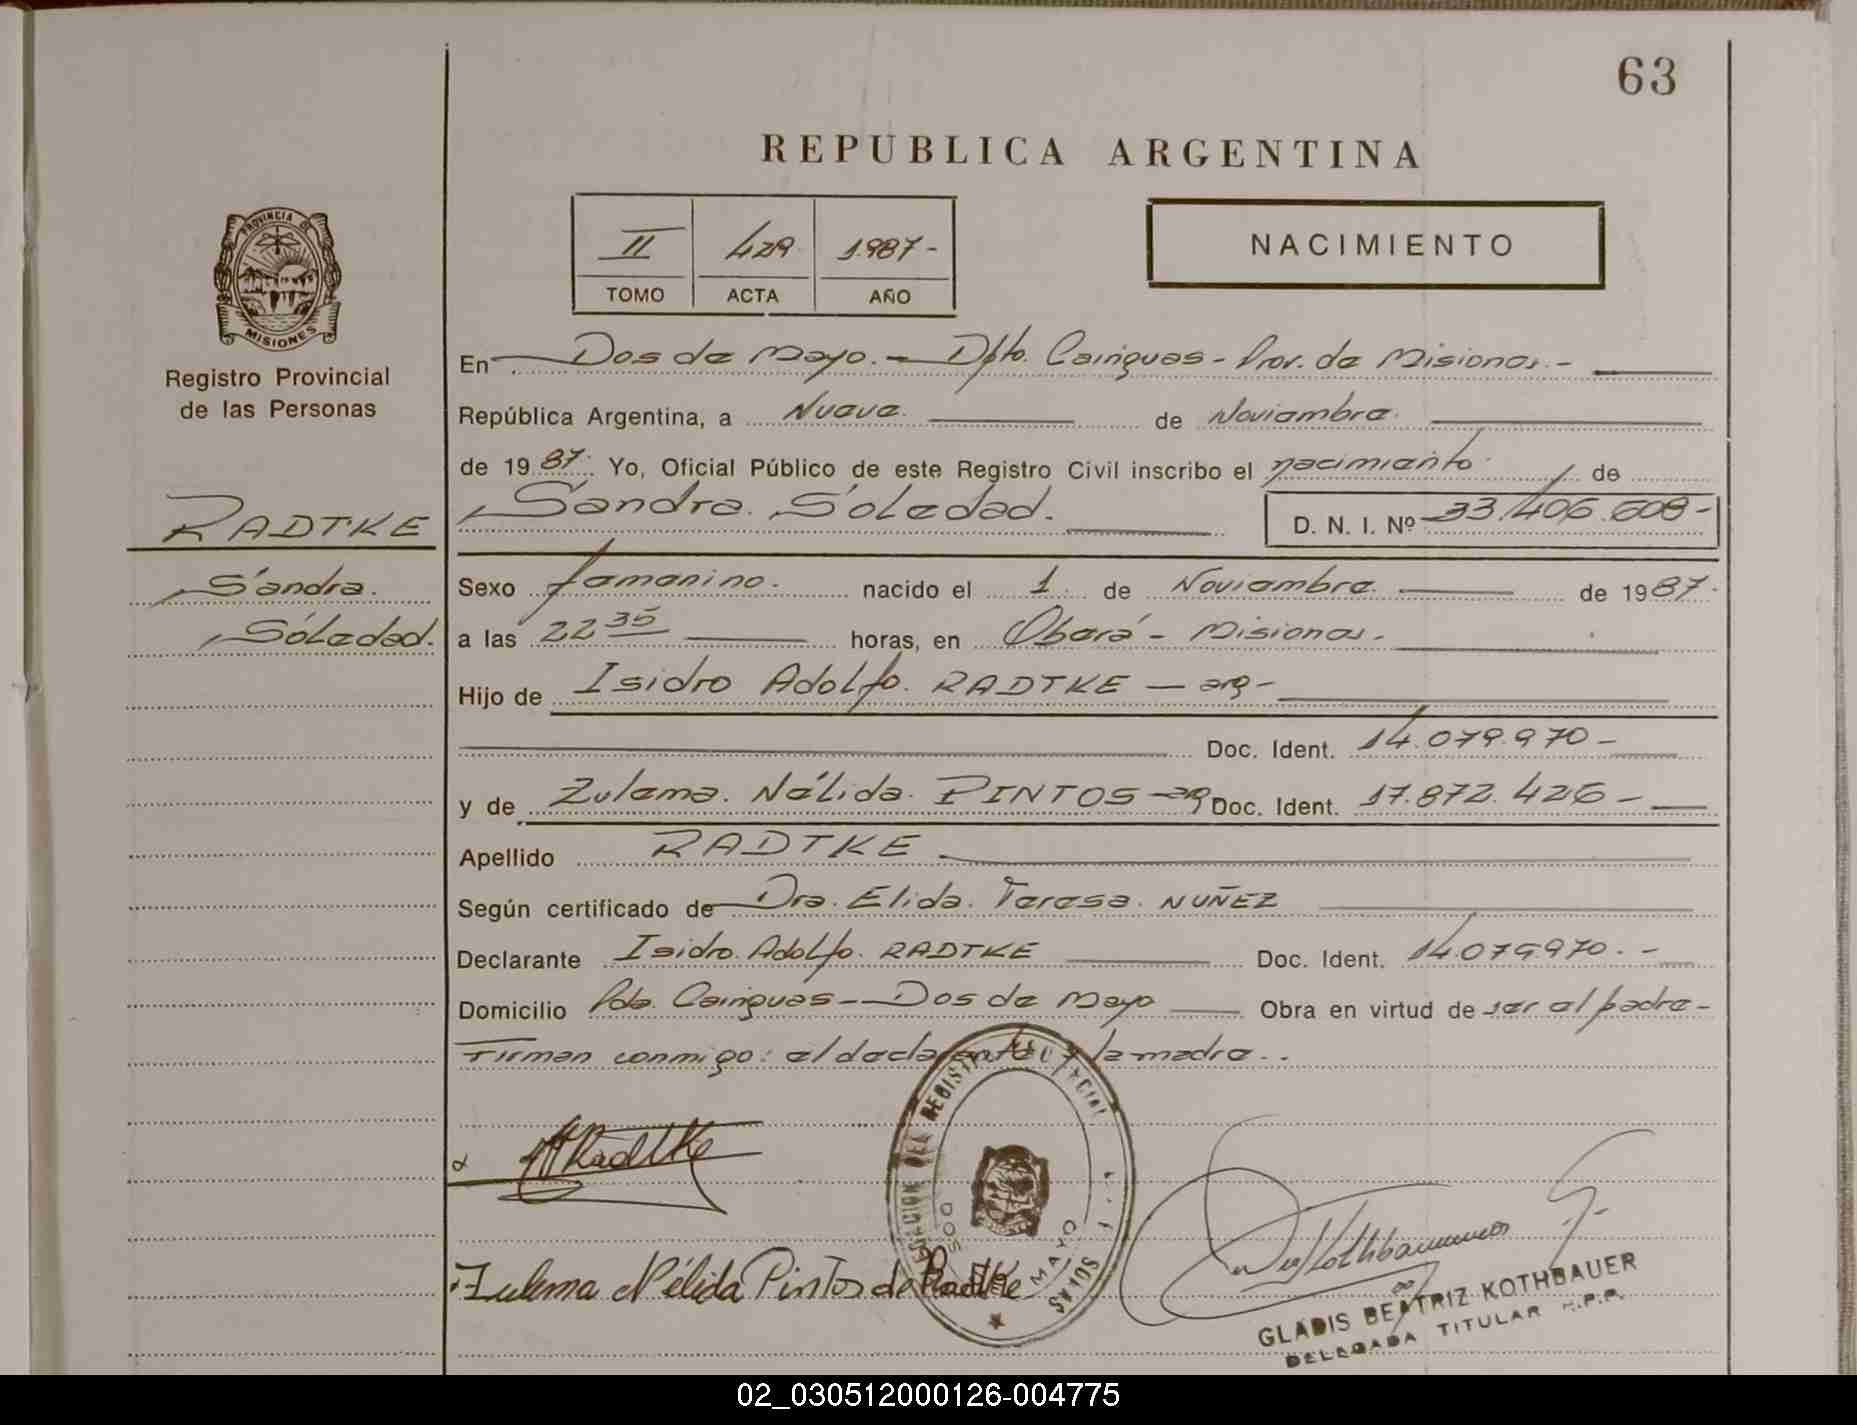 63
REPUBLICA ARGENTINA
II 429 1.987-
TOMO ACTA AÑO
NACIMIENTO
PROVINCIA DE
MISIONES
Registro Provincial
de las Personas
RADTKE
Sandra.
Soledad.
En Dos de Mayo.- Dpto. Cainguas - Prov. de Misiones.-
República Argentina, a Nueve. de Noviembre.
de 1987. Yo, Oficial Público de este Registro Civil inscribo el nacimiento de
Sandra. Soledad. D. N. I. Nº 33.406.608-
Sexo femenino. nacido el 1. de Noviembre. de 1987.
a las 22 35 horas, en Oberá - Misiones.
Hijo de Isidro Adolfo. RADTKE - arg-
Doc. Ident. 14.079.970-
y de Zulema. Nélida. PINTOS - arg Doc. Ident. 17.872.426-
Apellido RADTKE
Según certificado de Dra. Elida. Teresa. NUÑEZ
Declarante Isidro. Adolfo. RADTKE Doc. Ident. 14.079.970.-
Domicilio Pda. Cainguas - Dos de Mayo Obra en virtud de ser el padre-
Firman conmigo: el declarante y la madre..
Radtke
Zulema Nélida Pintos de Radtke
DOS DE MAYO
Kothbauer
GLADIS BEATRIZ KOTHBAUER
DELEGADA TITULAR R.P.P.
02_030512000126-004775